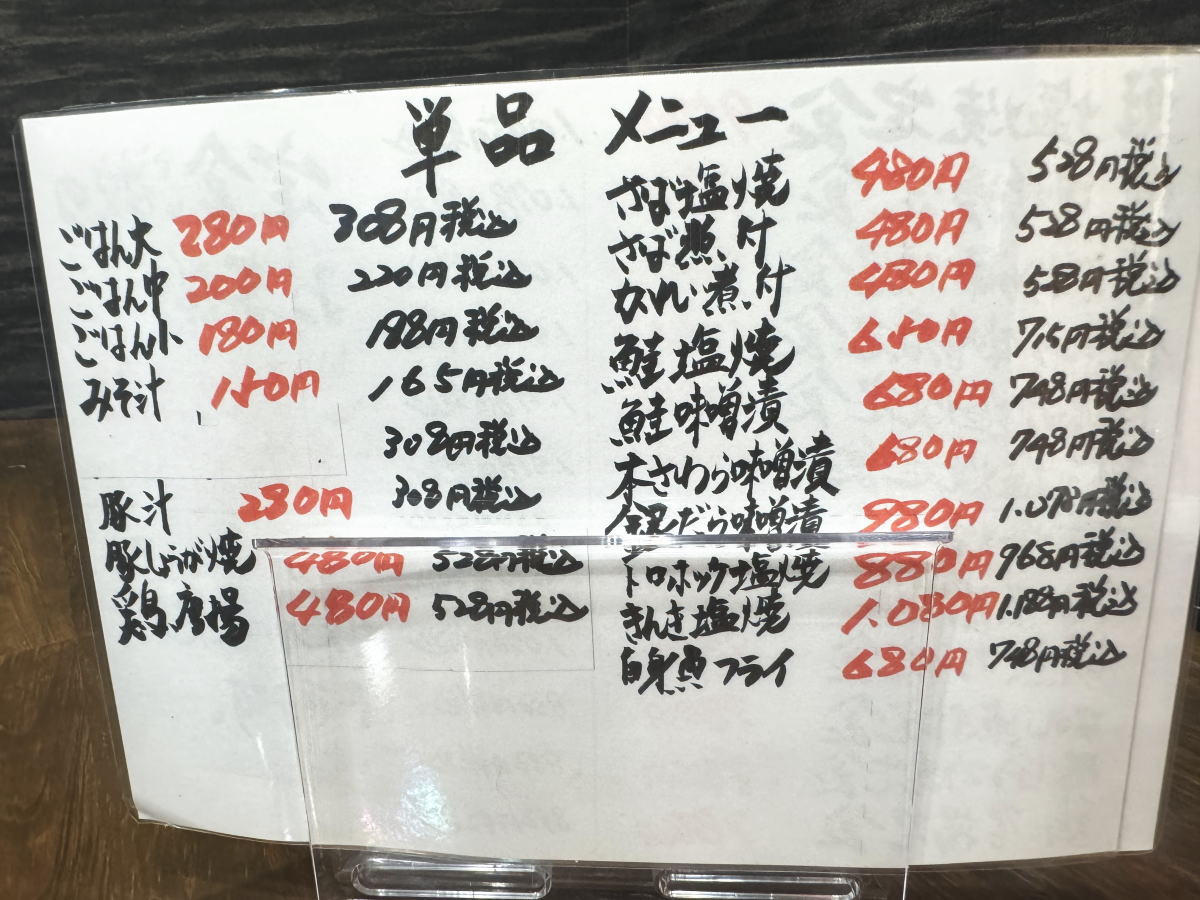 単品メニュー
ごはん大 280円 308円税込
ごはん中 200円 220円税込
ごはん小 180円 198円税込
みそ汁 150円 165円税込
308円税込
豚汁 280円 308円税込
豚しょうが焼 480円 528円税込
鶏唐揚 480円 528円税込
さば塩焼 480円 528円税込
さば煮付 480円 528円税込
かれい煮付 480円 528円税込
鮭塩焼 650円 715円税込
鮭味噌漬 680円 748円税込
本さわら味噌漬 680円 748円税込
銀だら味噌漬 980円 1.078円税込
トロホッケ塩焼 880円 968円税込
きんき塩焼 1.080円 1.188円税込
白身魚フライ 680円 748円税込